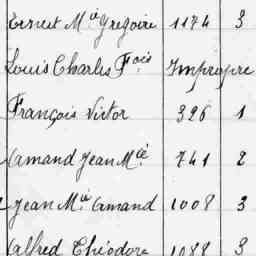 Ernest Mie Grégoire 1174 3
Louis Charles Fois Impropre
François Victor 396 1
Amand Jean Mie 741 2
Jean Mie Amand 1008 3
Alfred Théodore 1088 3